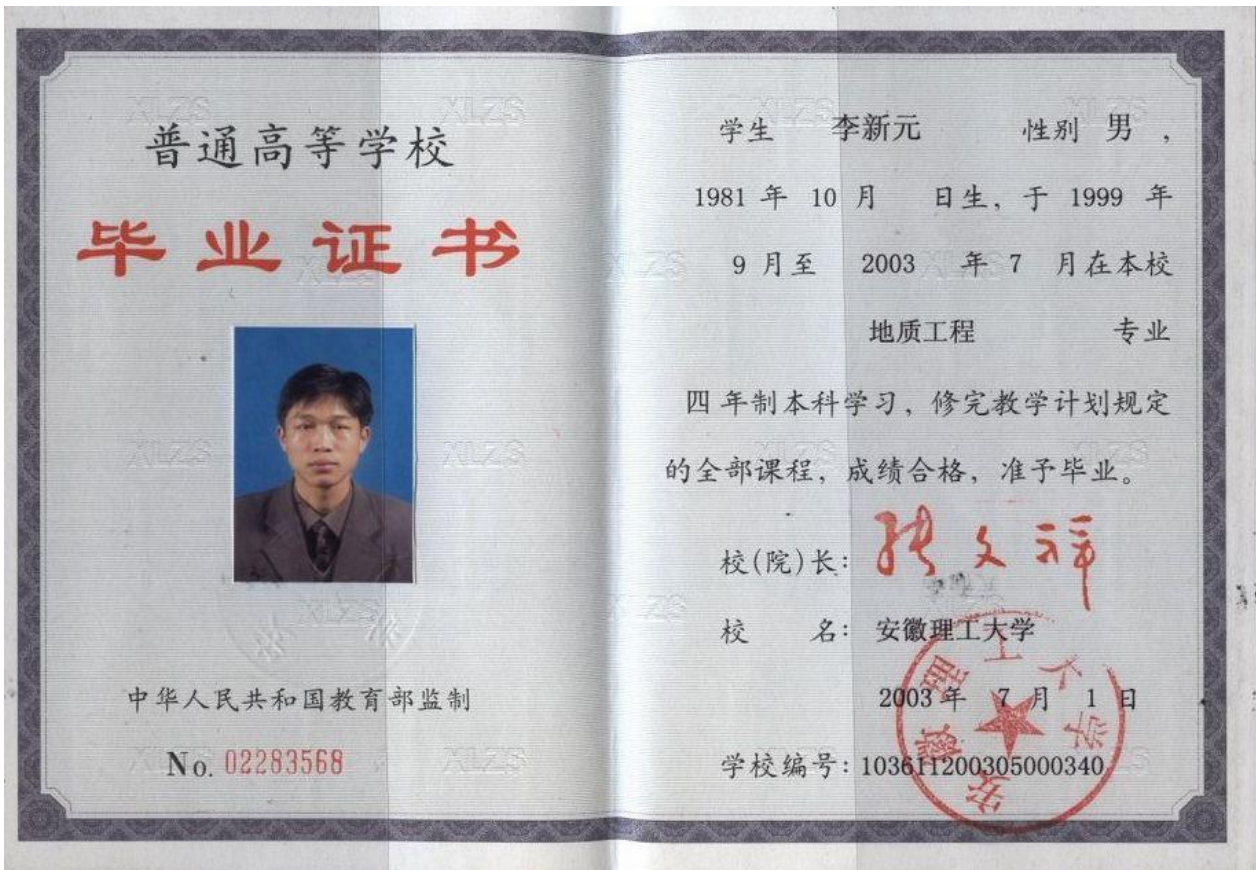 普通高等学校
毕业证书
中华人民共和国教育部监制
No. 02283568
学生 李新元 性别 男，
1981 年 10 月 日生，于 1999 年
9 月至 2003 年 7 月在本校
地质工程 专业
四 年制本科学习，修完教学计划规定
的全部课程，成绩合格，准予毕业。
校(院)长：张文祥
校 名：安徽理工大学
2003 年 7 月 1 日
学校编号：103611200305000340
安徽理工大学
XLZS